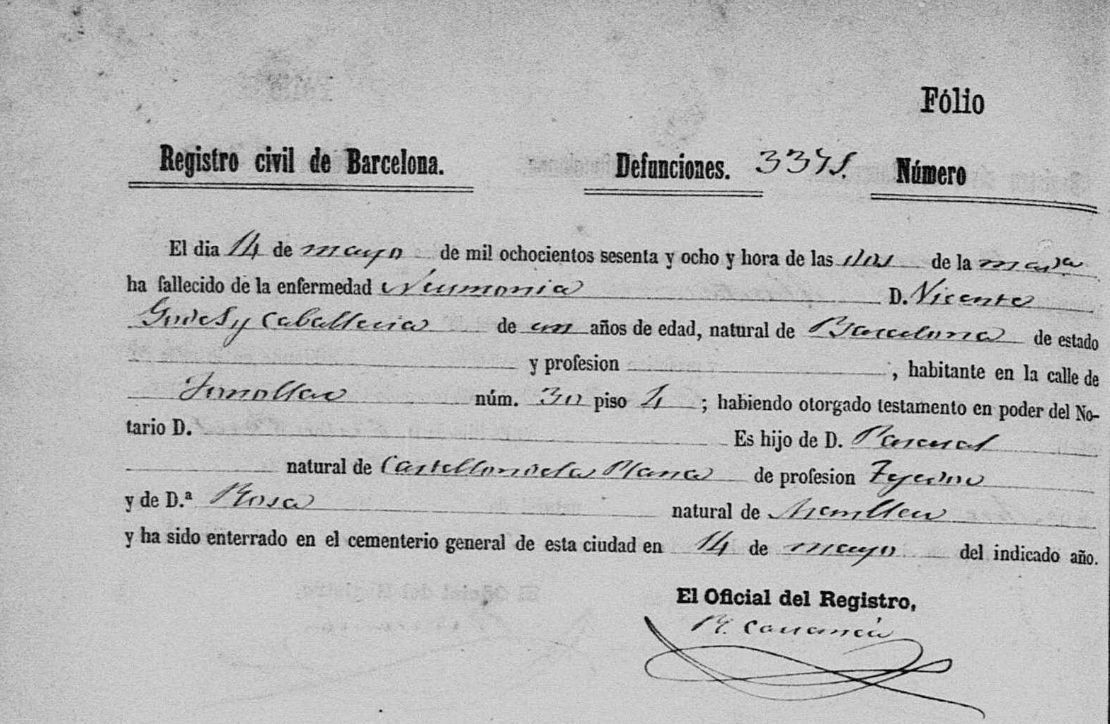 Fólio
Registro civil de Barcelona. Defunciones. 3375. Número
El dia 14 de mayo de mil ochocientos sesenta y ocho y hora de las dos de la maña
ha fallecido de la enfermedad Neumonia D. Vicente
y Caballeria de un años de edad, natural de Barcelona de estado
y profesion , habitante en la calle de
núm. 30 piso 4 ; habiendo otorgado testamento en poder del No-
tario D. Es hijo de D. Pascual
natural de Castellon de la Plana de profesion
y de D.ª Rosa natural de
y ha sido enterrado en el cementerio general de esta ciudad en 14 de mayo del indicado año.
El Oficial del Registro,